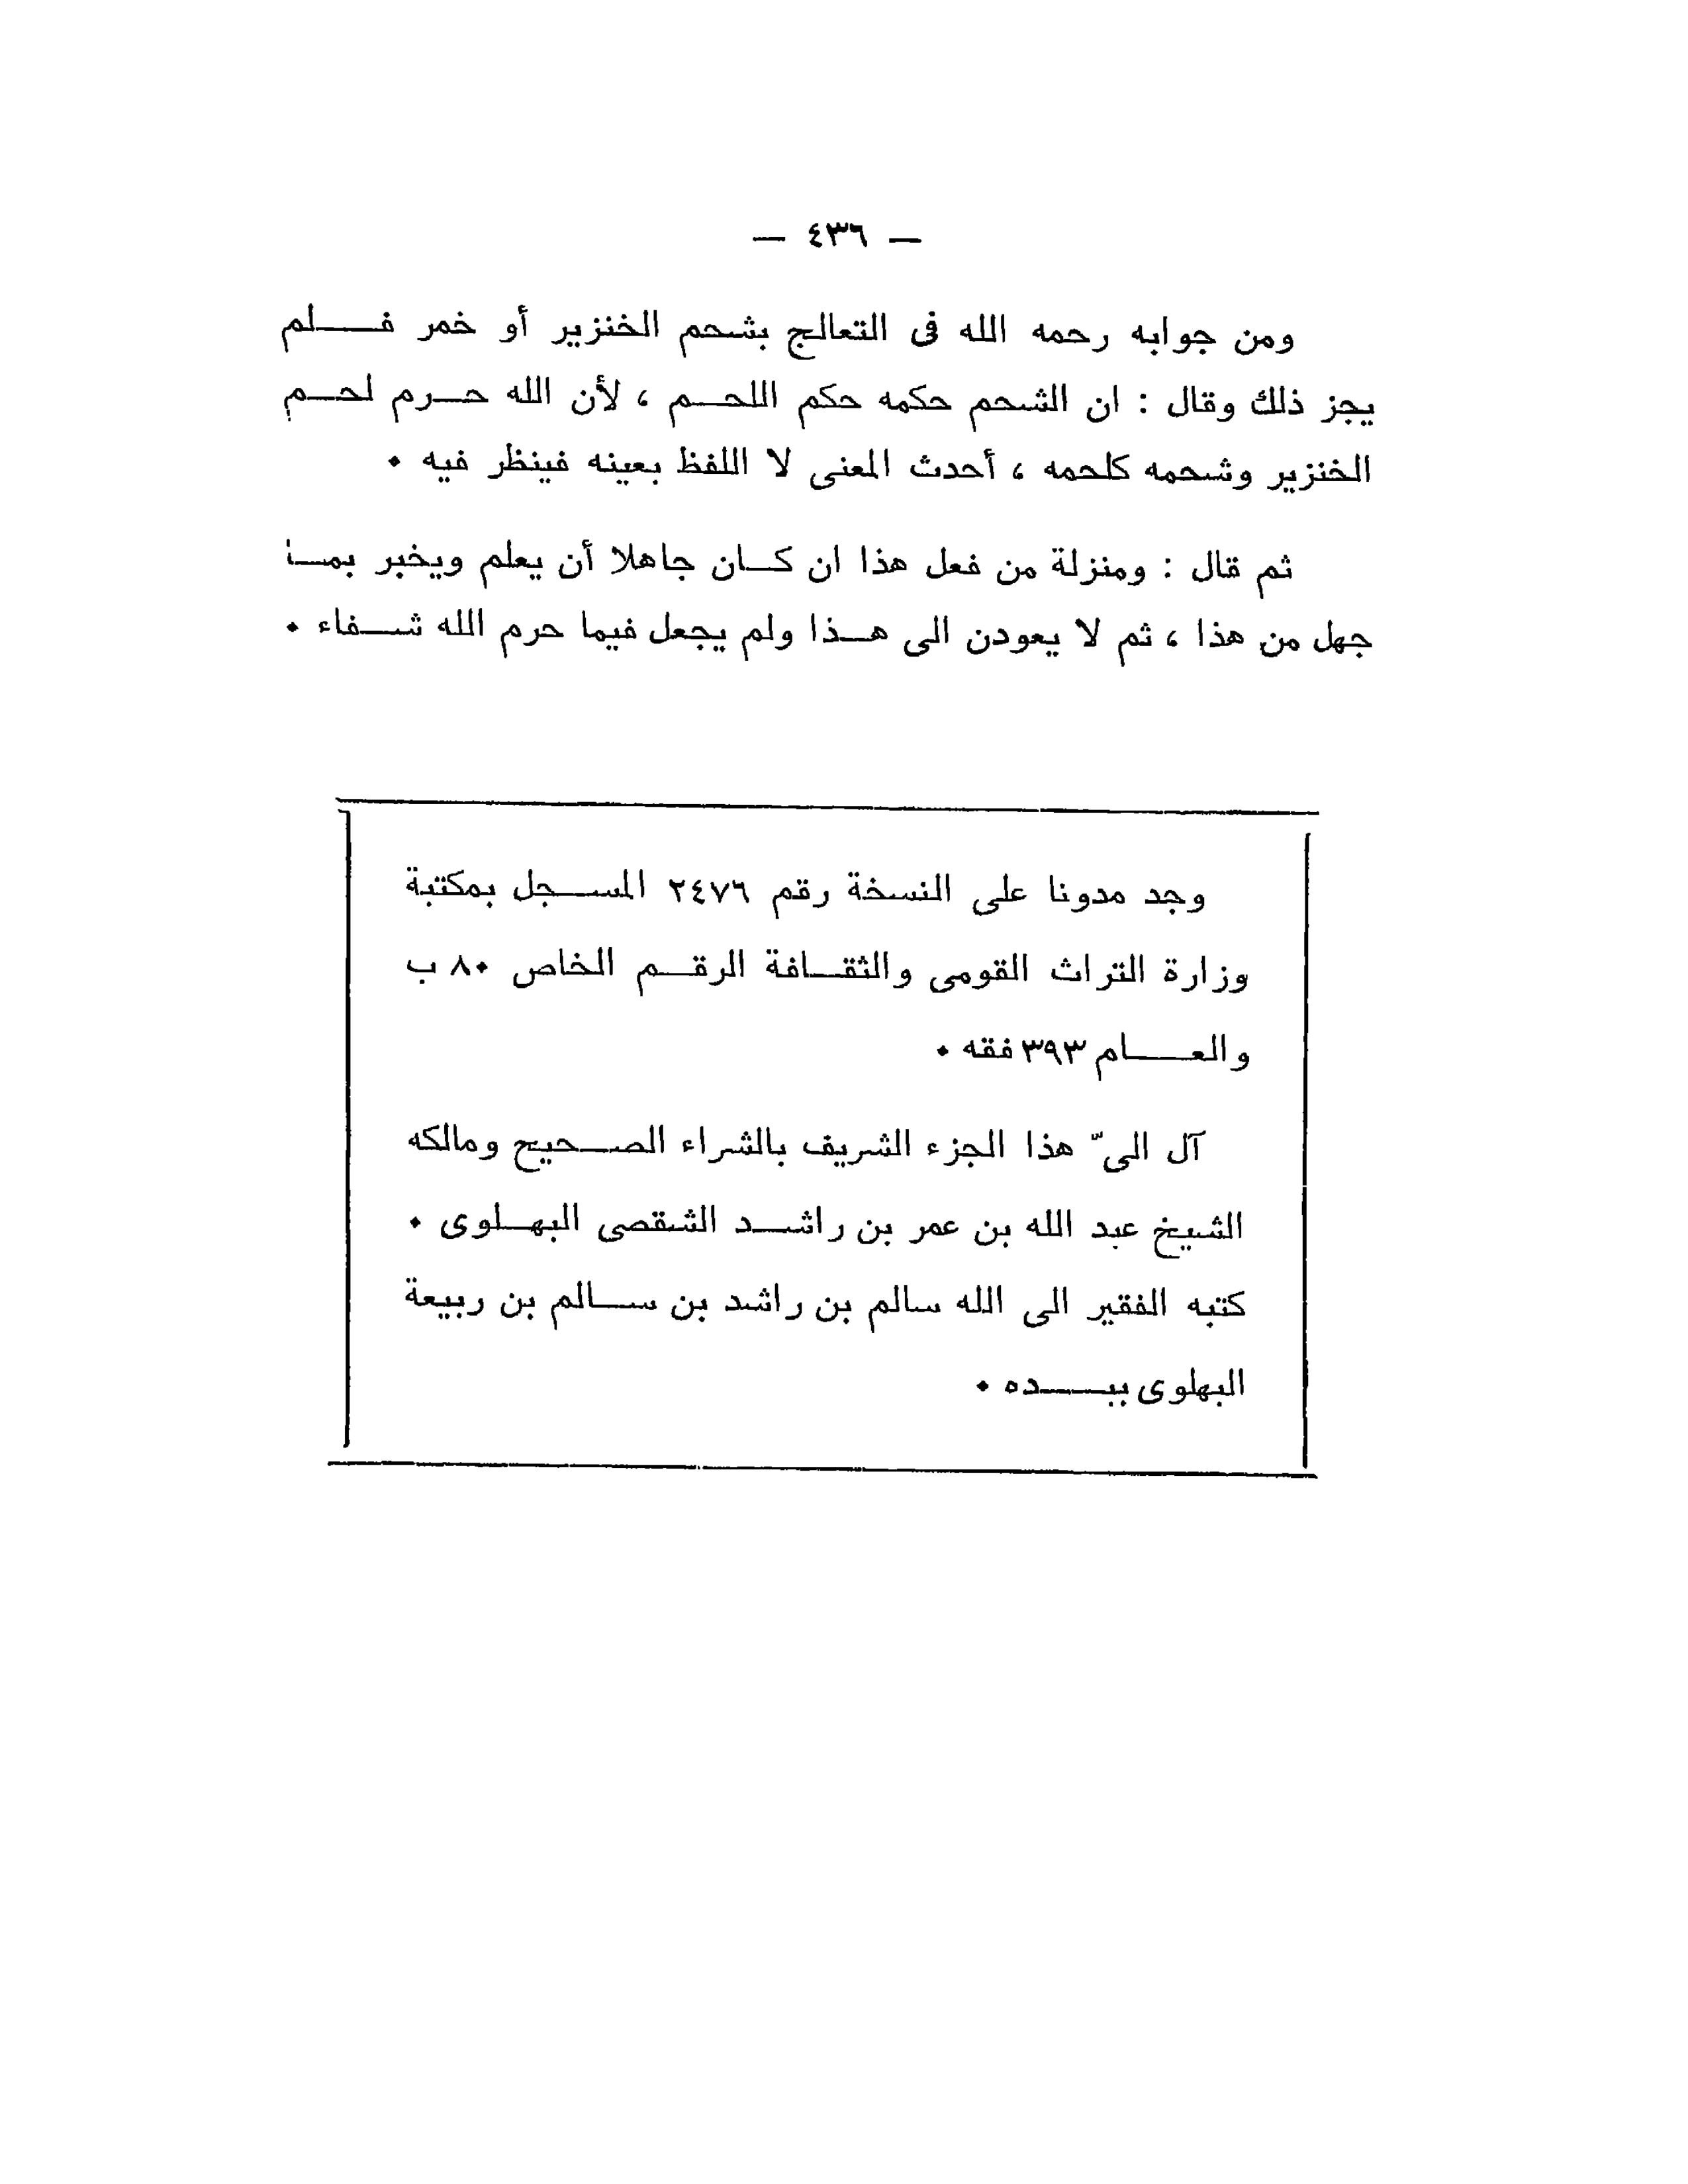 — ٤٣٦ —
ومن جوابه رحمه الله فى التعالج بشحم الخنزير أو خمر فلم
يجز ذلك وقال : ان الشحم حكمه حكم اللحم ، لأن الله حرم لحم
الخنزير وشحمه كلحمه ، أحدث المعنى لا اللفظ بعينه فينظر فيه ٠
ثم قال : ومنزلة من فعل هذا ان كان جاهلا أن يعلم ويخبر بما
جهل من هذا ، ثم لا يعودن الى هذا ولم يجعل فيما حرم الله شفاء ٠
وجد مدونا على النسخة رقم ٢٤٧٦ المسجل بمكتبة
وزارة التراث القومى والثقافة الرقم الخاص ٨٠ ب
والعام ٣٩٣ فقه ٠
آل الىّ هذا الجزء الشريف بالشراء الصحيح ومالكه
الشيخ عبد الله بن عمر بن راشد الشقصى البهلوى ٠
كتبه الفقير الى الله سالم بن راشد بن سالم بن ربيعة
البهلوى بيده ٠